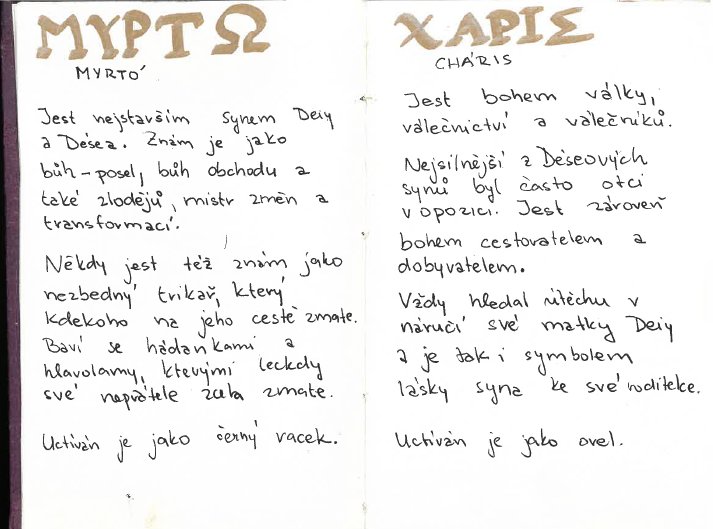 ΜΥΡΤΩ
MYRTÓ
Jest nejstarším synem Deiy
a Désea. Znám je jako
bůh-posel, bůh obchodu a
také zlodějů, mistr změn a
transformací.
Někdy jest též znám jako
nezbedný trikař, který
kdekoho na jeho cestě zmate.
Baví se hádankami a
hlavolamy, kterými leckdy
své nepřátele zcela zmate.
Uctíván je jako černý vacek.
ΧΑΡΙΣ
CHÁRIS
Jest bohem války,
válečnictví a válečníků.
Nejsilnější z Déseových
synů byl často otci
v opozici. Jest zároveň
bohem cestovatelem a
dobyvatelem.
Vždy hledal útěchu v
náručí své matky Deiy
a je tak i symbolem
lásky syna ke své roditelce.
Uctíván je jako orel.